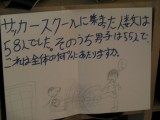 サッカースクールに集まった人数は
58人でした。そのうち男子は55人で、
これは全体の何%にあたりますか。